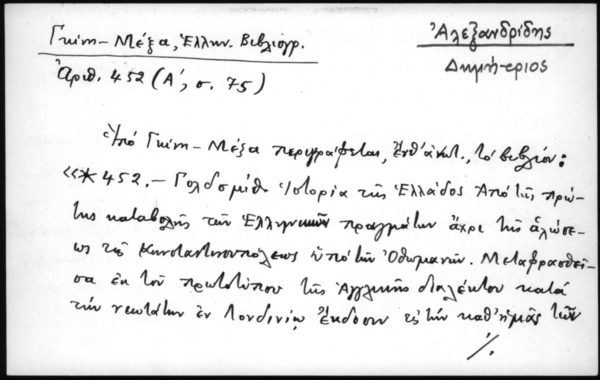 Γκίνη - Μέξα, Ἑλλην. Βιβλιογρ.
Ἀλεξανδρίδης
Ἀριθ. 452 (Α΄, σ. 75)
Δημήτριος
Ὑπό Γκίνη - Μέξα περιγράφεται, ἔνθ' ἀνωτ., τό βιβλίον:
«* 452. - Γολδσμίθ Ἱστορία τῆς Ἑλλάδος Ἀπό τῆς πρώ-
της καταβολῆς τῶν Ἑλληνικῶν πραγμάτων ἄχρι τῆς ἁλώσε-
ως τῆς Κωνσταντινουπόλεως ὑπό τῶν Ὀθωμανῶν. Μεταφρασθεῖ-
σα ἐκ τοῦ πρωτοτύπου τῆς Ἀγγλικῆς διαλέκτου κατά
τήν νεωτάτην ἐν Λονδινίῳ ἔκδοσιν εἰς τήν καθ' ἡμᾶς τῶν
./.